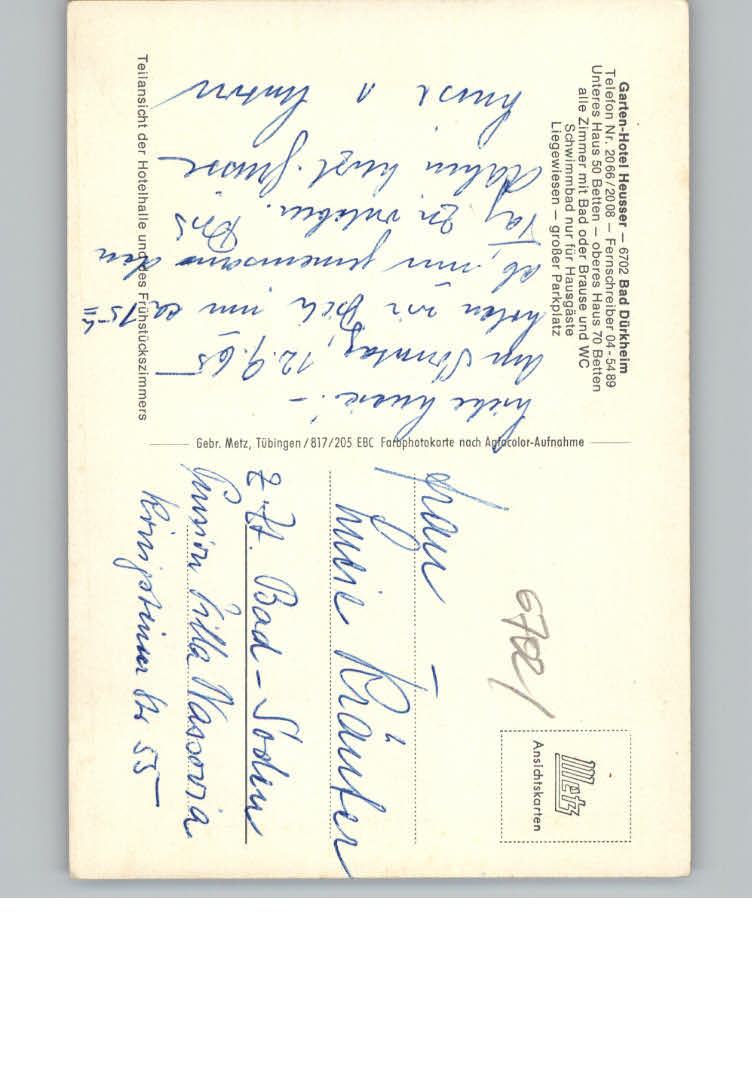 Garten-Hotel Heusser – 6702 Bad Dürkheim
Telefon Nr. 2066/2008 – Fernschreiber 04-5489
Unteres Haus 50 Betten – oberes Haus 70 Betten
alle Zimmer mit Bad oder Brause und WC
Schwimmbad nur für Hausgäste
Liegewiesen – großer Parkplatz
Liebe Luise! –
Am Sonntag, 12.9.65
holen wir Dich um ca 15 h
ab, um gemeinsam den
Tag zu erleben. Bis
dahin herzl. Grüsse
Luise u Anton
Teilansicht der Hotelhalle und des Frühstückszimmers
Gebr. Metz, Tübingen/817/205 EBC Farbphotokarte nach Agfacolor-Aufnahme
6702/
Metz
Ansichtskarten
Frau
Luise Kräuter
z. Zt. Bad-Soden
Pension Villa Nassovia
Königsteiner Str 55